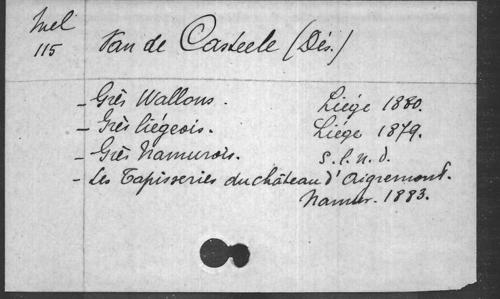 Mel
115
Van de Casteele (Dés.)
- Grès Wallons. Liége 1880.
- Grès liégeois. Liége 1879.
- Grès Namurois. s.l.n.d.
- Les Tapisseries du château d'Aigremont.
Namur. 1883.